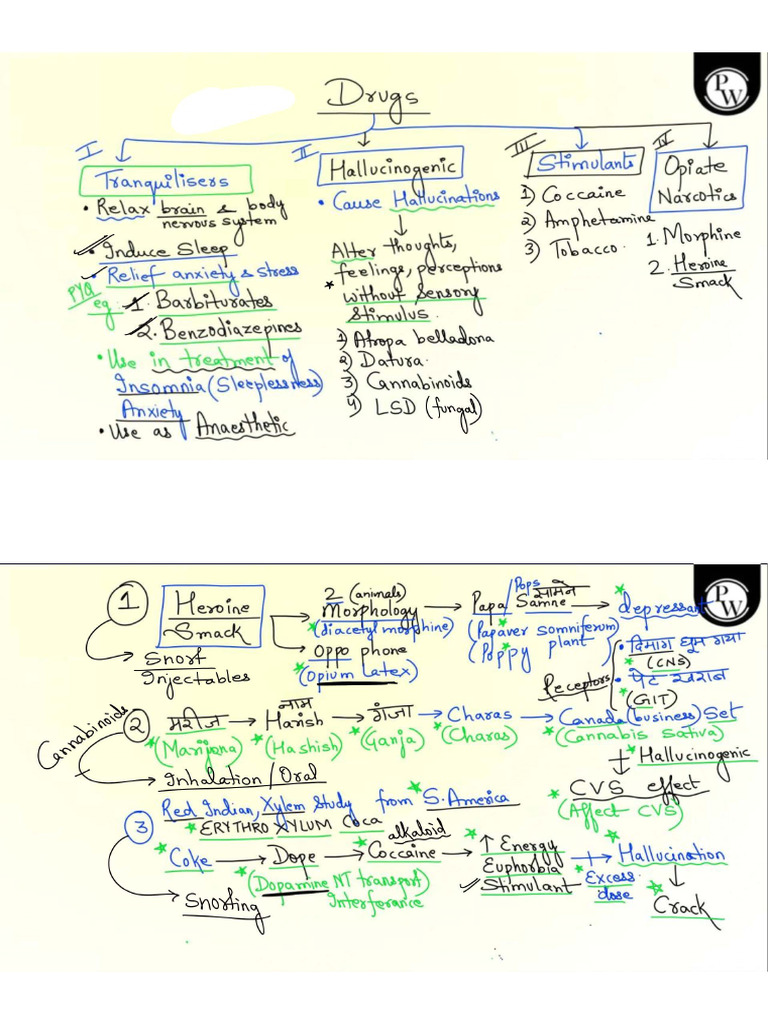 Drugs
PW
I
Tranquilisers
• Relax brain & body
nervous system
• Induce Sleep
• Relief anxiety & stress
PYQ
eg
1. Barbiturates
2. Benzodiazepines
• Use in treatment of
Insomnia (Sleeplessness)
Anxiety
• Use as Anaesthetic
II
Hallucinogenic
• Cause Hallucinations
Alter thoughts,
feelings, perceptions
* without Sensory
Stimulus.
1) Atropa belladona
2) Datura
3) Cannabinoids
4) LSD (fungal)
III
Stimulants
1) Coccaine
2) Amphetamine
3) Tobacco.
IV
Opiate
Narcotics
1. Morphine
2. Heroine
Smack
PW
1
Heroine
Smack
Snort
Injectables
2 (animals)
Morphology
(diacetyl morphine)
Oppo phone
(Opium Latex)
Pops सामने
Papa Samne
(Papaver somniferum)
(Poppy plant)
depressant
Receptors
• दिमाग घूम गया
(CNS)
• पेट खराब
(GIT)
Cannabinoids
2
मरीज → Harish → गंजा → Charas → Canada (business) Set
नाम
(Marijona) (Hashish) (Ganja) (Charas) (Cannabis sativa)
Inhalation / Oral
+ Hallucinogenic
CVS effect
(Affect CVS)
3
Red Indian, Xylem Study from S. America
ERYTHROXYLUM Coca
alkaloid
Coke → Dope → Coccaine → ↑ Energy
Euphorbia
Stimulant
(Dopamine NT transport)
Interferance
Snorting
+ Hallucination
Excess
dose
Crack